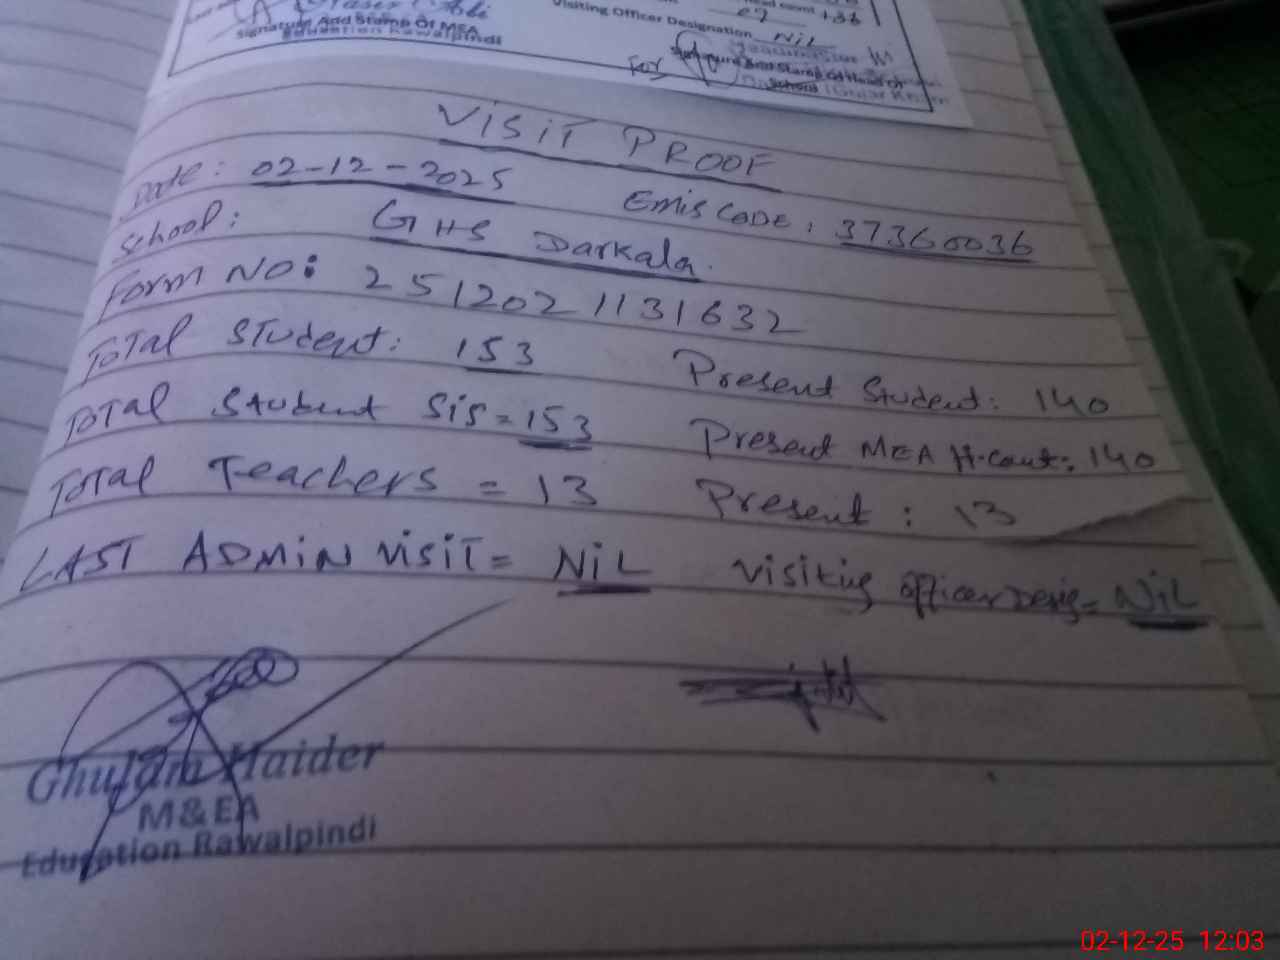 Visiting Officer Designation Nil
Signature And Stamp Of MEA
Education Rawalpindi
For
School
VISIT PROOF
Date: 02-12-2025 Emis CODE: 37360036
School: GHS Darkala.
Form NO: 251202 1131632
Total Student: 153 Present Student: 140
Total Student Sis = 153 Present MEA H.cout: 140
Total Teachers = 13 Present: 13
LAST ADMIN Visit = NiL Visiting officer Desig = NiL
Ghulam Haider
M&EA
Education Rawalpindi
02-12-25 12:03